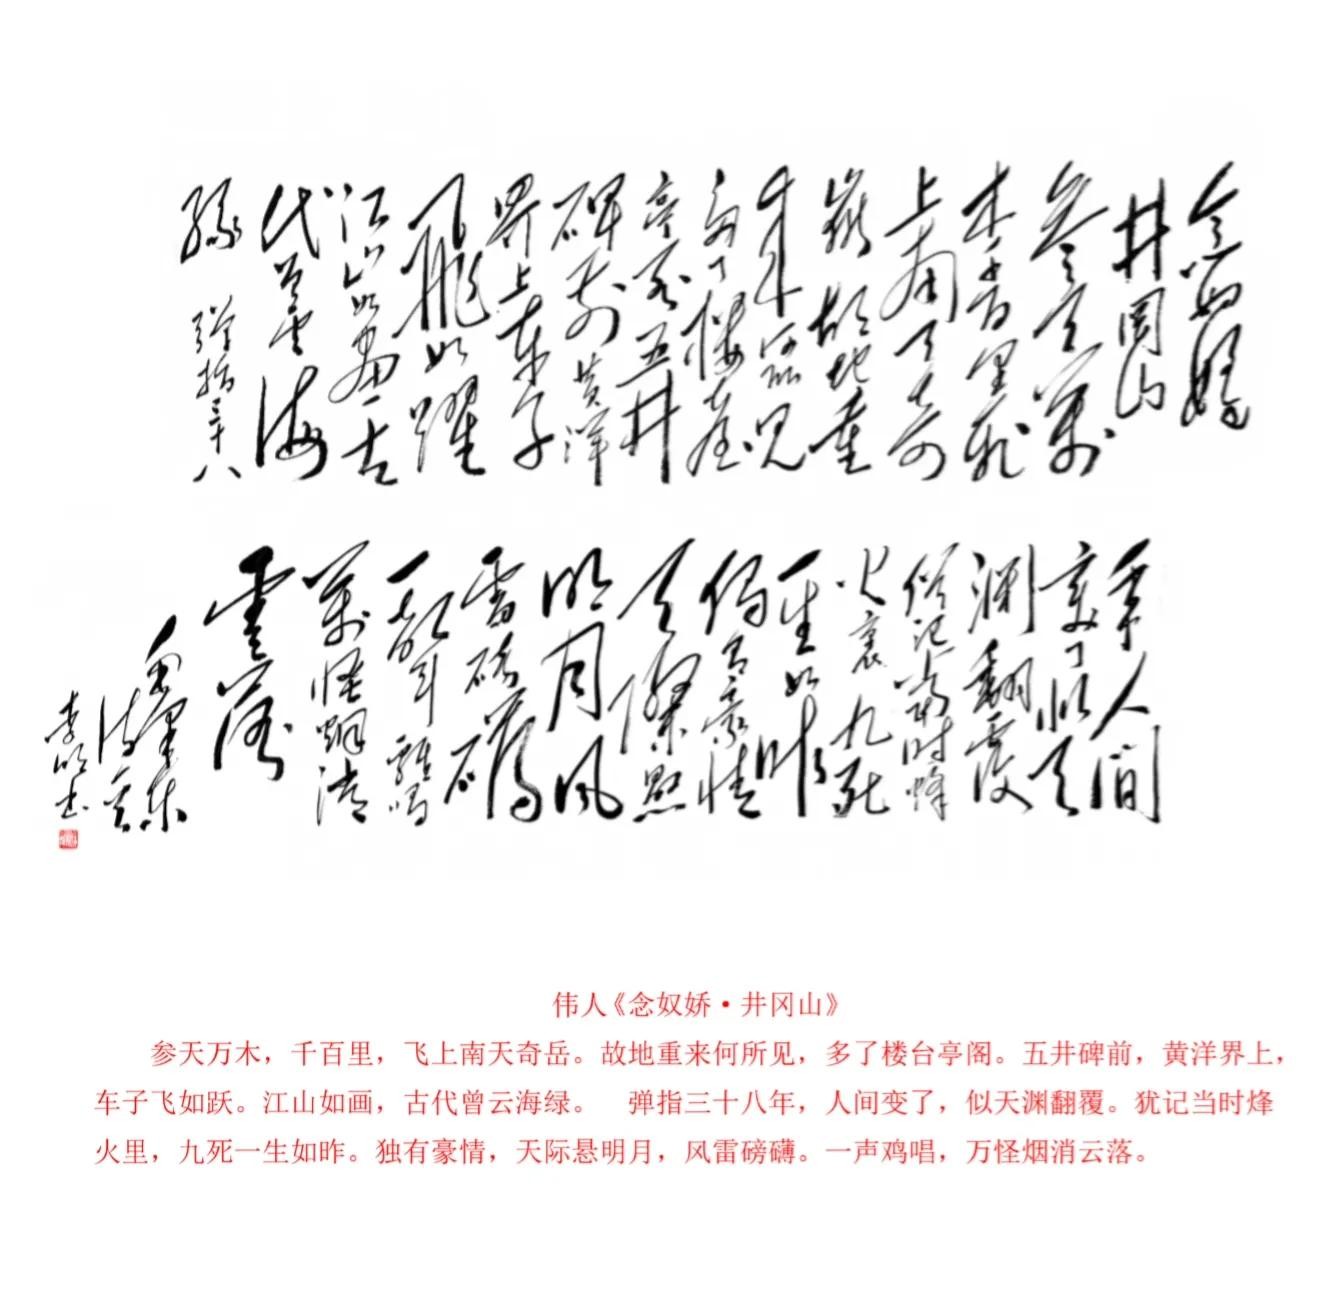 念奴嬌
井岡山
參天萬
木千百里飛
上南天奇
嶽故地重
來何所見
多了樓臺
亭閣五井
碑前黃洋
界上車子
飛如躍
江山如畫古
代曾雲海
綠 彈指三十八
年人間
變了似天
淵翻覆
猶記當時烽
火裏九死
一生如昨
獨有豪情
天際懸
明月風
雷磅礴
一聲雞唱
萬怪烟消
雲落
伟人《念奴娇·井冈山》
参天万木，千百里，飞上南天奇岳。故地重来何所见，多了楼台亭阁。五井碑前，黄洋界上，
车子飞如跃。江山如画，古代曾云海绿。 弹指三十八年，人间变了，似天渊翻覆。犹记当时烽
火里，九死一生如昨。独有豪情，天际悬明月，风雷磅礴。一声鸡唱，万怪烟消云落。